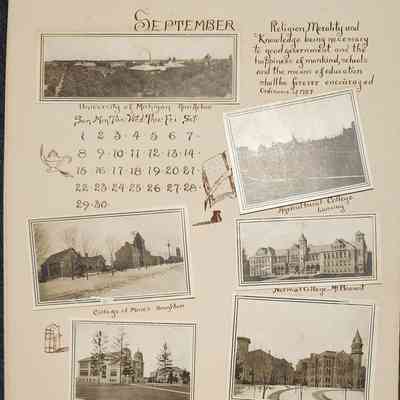 SEPTEMBER
Religion, Morality and
Knowledge being necessary
to good government and the
happiness of mankind, schools
and the means of education
shall be forever encouraged
Ordinance of 1787
University of Michigan Ann Arbor
Sun. Mon. Tue. Wed. Thu. Fri. Sat.
1 2 3 4 5 6 7
8 9 10 11 12 13 14
15 16 17 18 19 20 21
22 23 24 25 26 27 28
29 30
Agricultural College
Lansing
College of Mines Houghton
Normal College Mt Pleasant